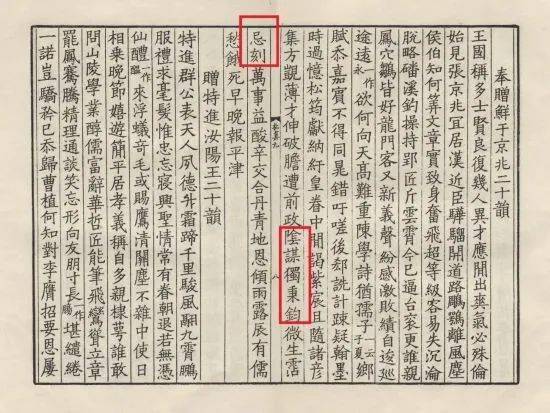 奉贈鮮于京兆二十韻
王國稱多士賢良復幾人異才應間出爽氣必殊倫
始見張京兆宜居漢近臣驊騮開道路鵰鶚離風塵
侯伯知何等文章實致身奮飛超等級容易失沉淪
脫略磻溪釣操持郢匠斤雲霄今已逼台袞更誰親
鳳穴雛皆好龍門客又新義聲紛感激敗績自逡巡
途遠一作永欲何向天高難重陳學詩猶孺子一云子夏鄉
賦忝嘉賓不得同晁錯吁嗟後郤詵計疎疑翰墨
時過憶松筠獻納紆皇眷中間謁紫宸且隨諸彥
集方覬薄才伸破膽遭前政陰謀獨秉鈞微生霑
八
忌刻萬事益酸辛交合丹青地恩傾雨露辰有儒
愁餓死早晚報平津
贈特進汝陽王二十韻
特進群公表天人夙德升霜蹄千里駿風翮九霄鵬
服禮求毫髮惟忠忘寢興聖情常有眷朝退若無憑
仙醴一作來浮蟻奇毛或賜鷹清關塵不雜中使日
相乘晚節嬉遊簡平居孝義稱自多親棣萼誰敢
問山陵學業醇儒富辭華哲匠能筆飛鸞聳立章
罷鳳騫騰精理通談笑忘形向友朋寸長一作腸堪繾綣
一諾豈驕矜已忝歸曹植何知對李膺招要恩屢